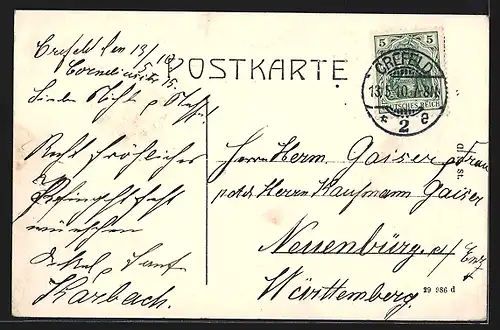 Crefeld den 13/5 10
Corneliusstr 15.
POSTKARTE
Lieber Nicht
Recht fröhliches
Pfingstfest
wünschen
Onkel, Tante
Karbach.
5
CREFELD
13.5.10. 7-8N
* 2 e
DEUTSCHES REICH
Herrn Herm. Gaiser, Frau
p. adr. Herrn Kaufmann Gaiser
Neuenbürg a/ Enz
Württemberg.
29 986 d